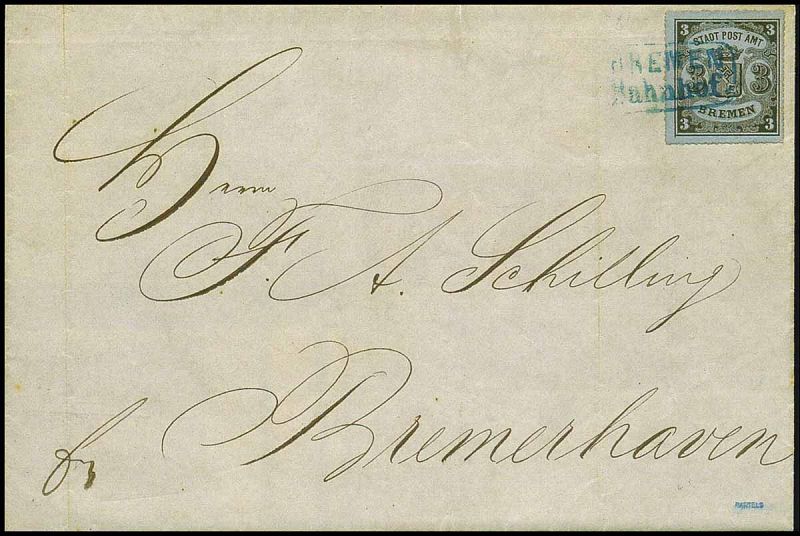 3 3
STADT POST AMT
3 3
BREMEN
3 3
BREMEN
Bahnhof
Herrn
F. A. Schilling
fr
Bremerhaven